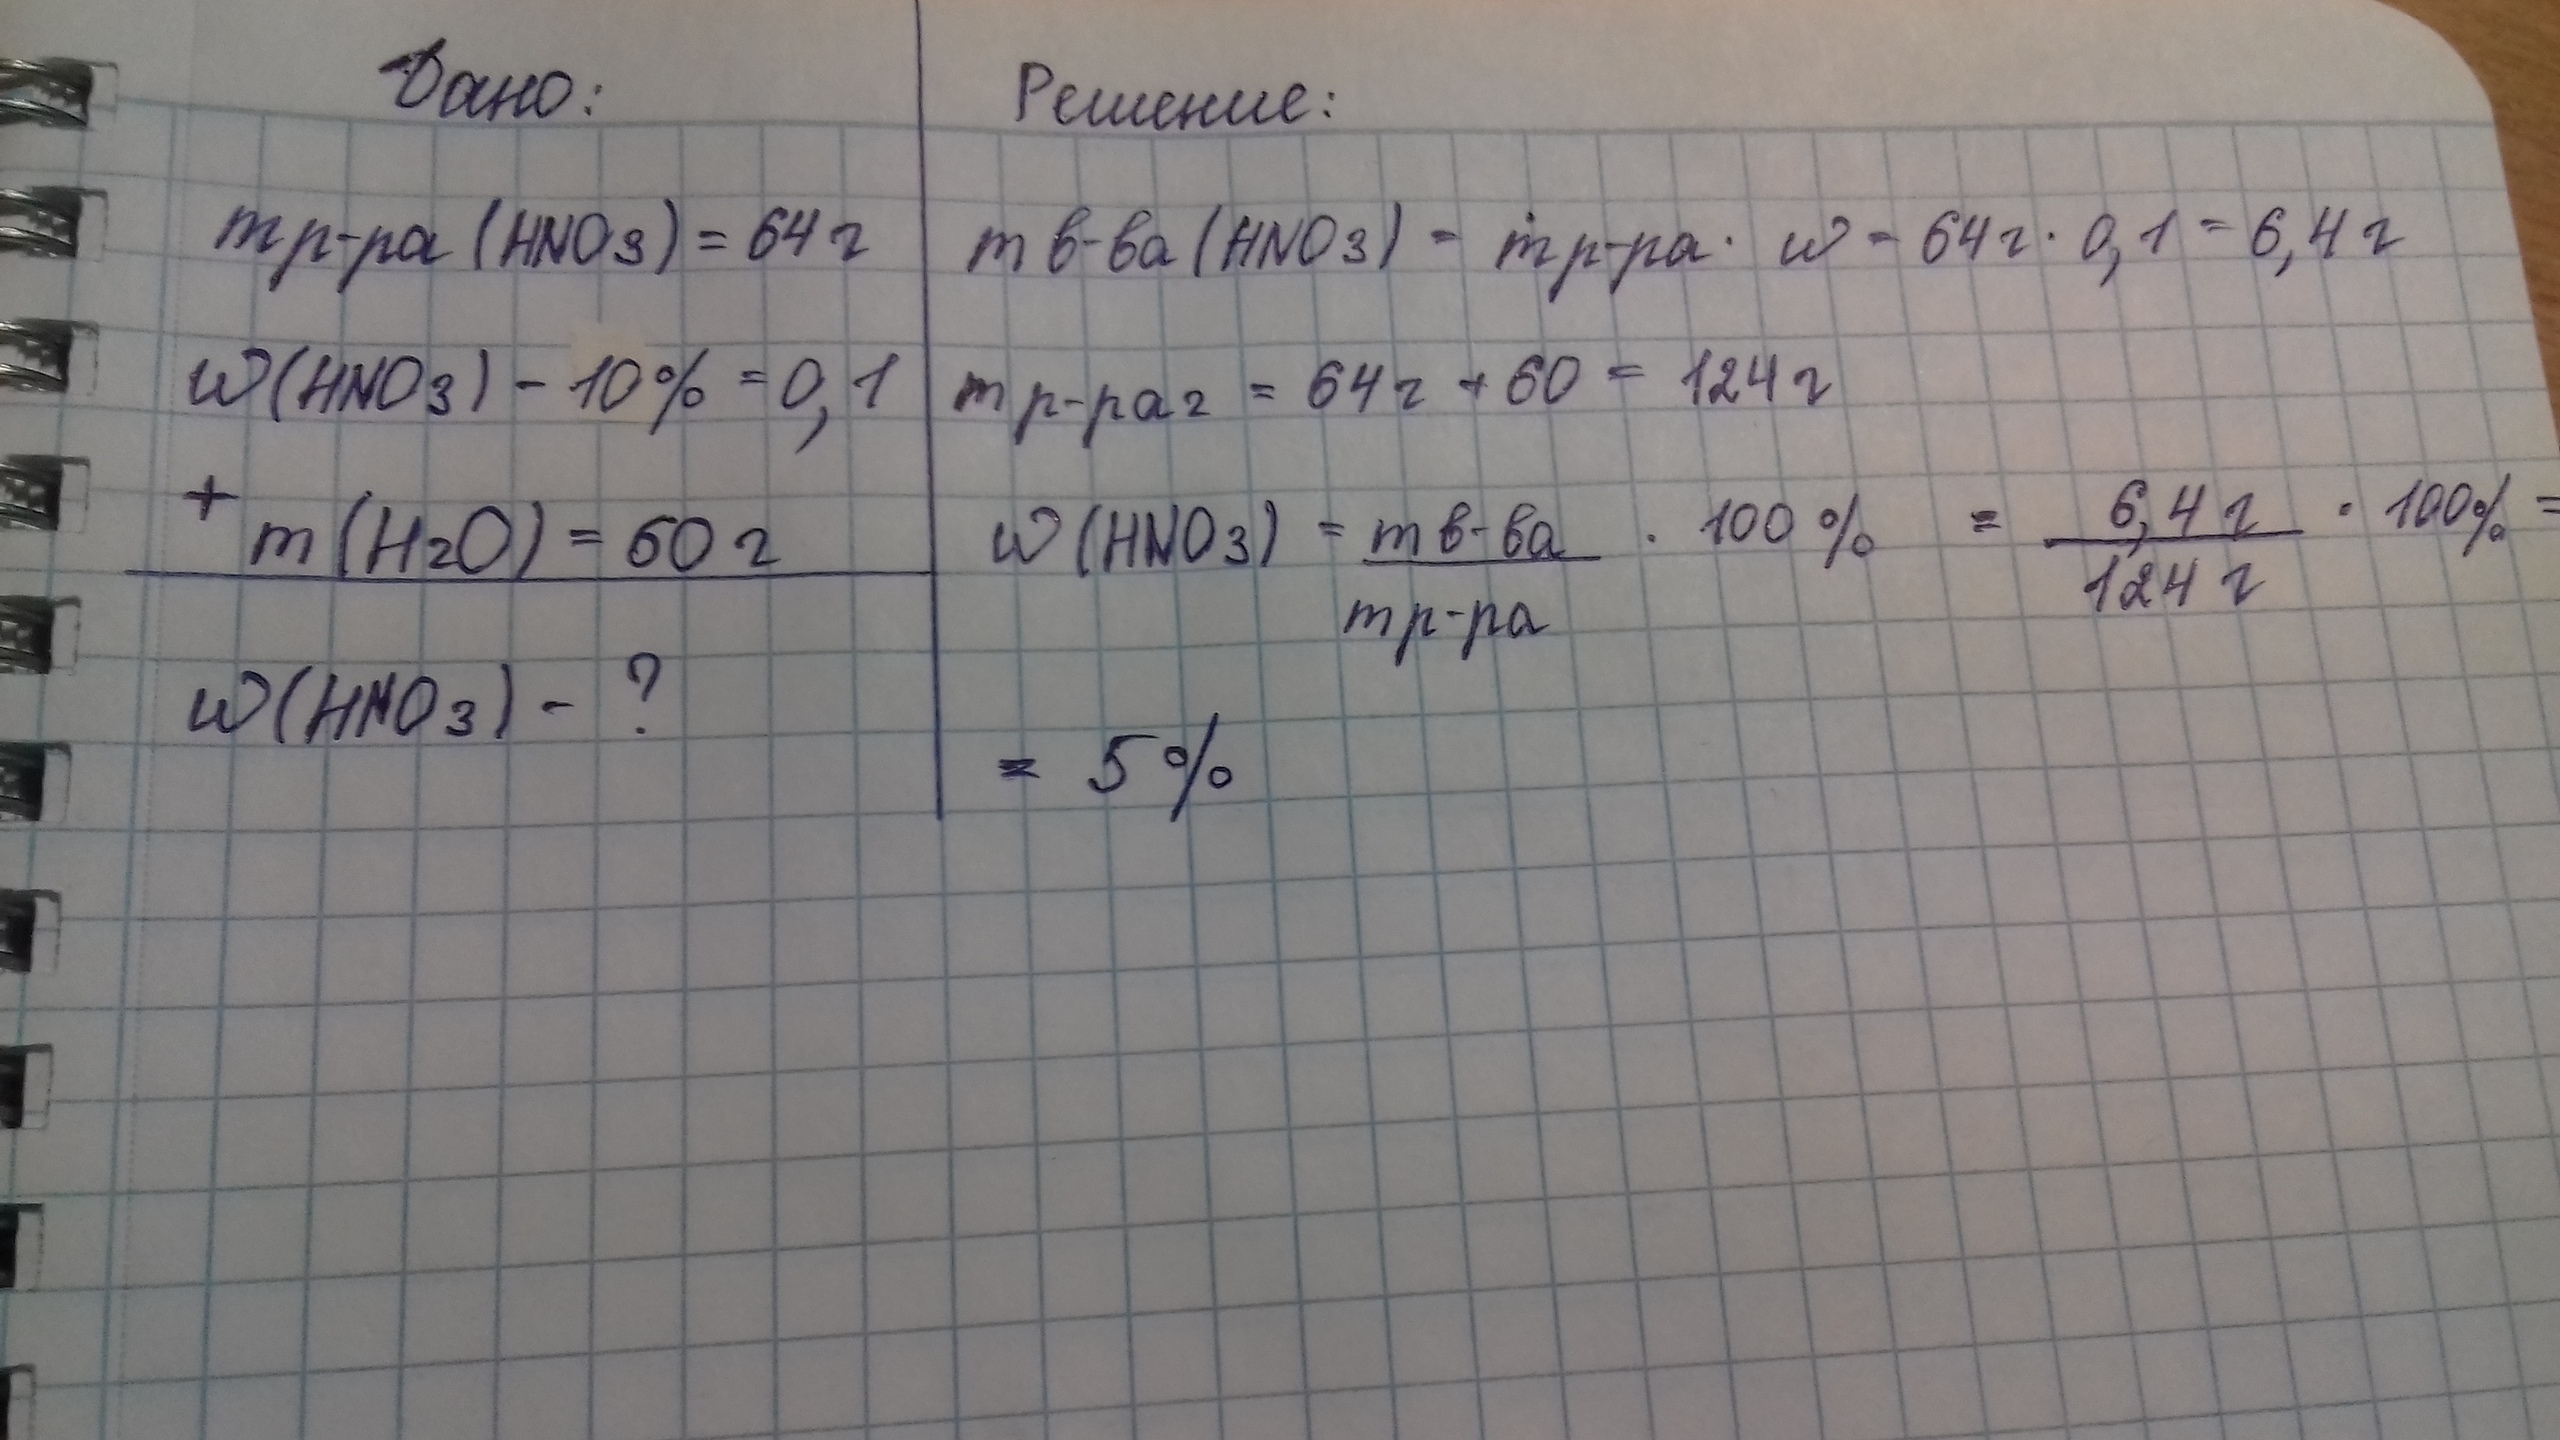 Дано:
mр-ра (HNO3) = 64 г
W(HNO3) - 10% = 0,1
+
m(H2O) = 60 г
W(HNO3) - ?
Решение:
m в-ва (HNO3) = mр-ра · W = 64 г · 0,1 = 6,4 г
mр-ра2 = 64 г + 60 = 124 г
W(HNO3) = m в-ва / mр-ра · 100 % = 6,4 г / 124 г · 100% =
= 5 %